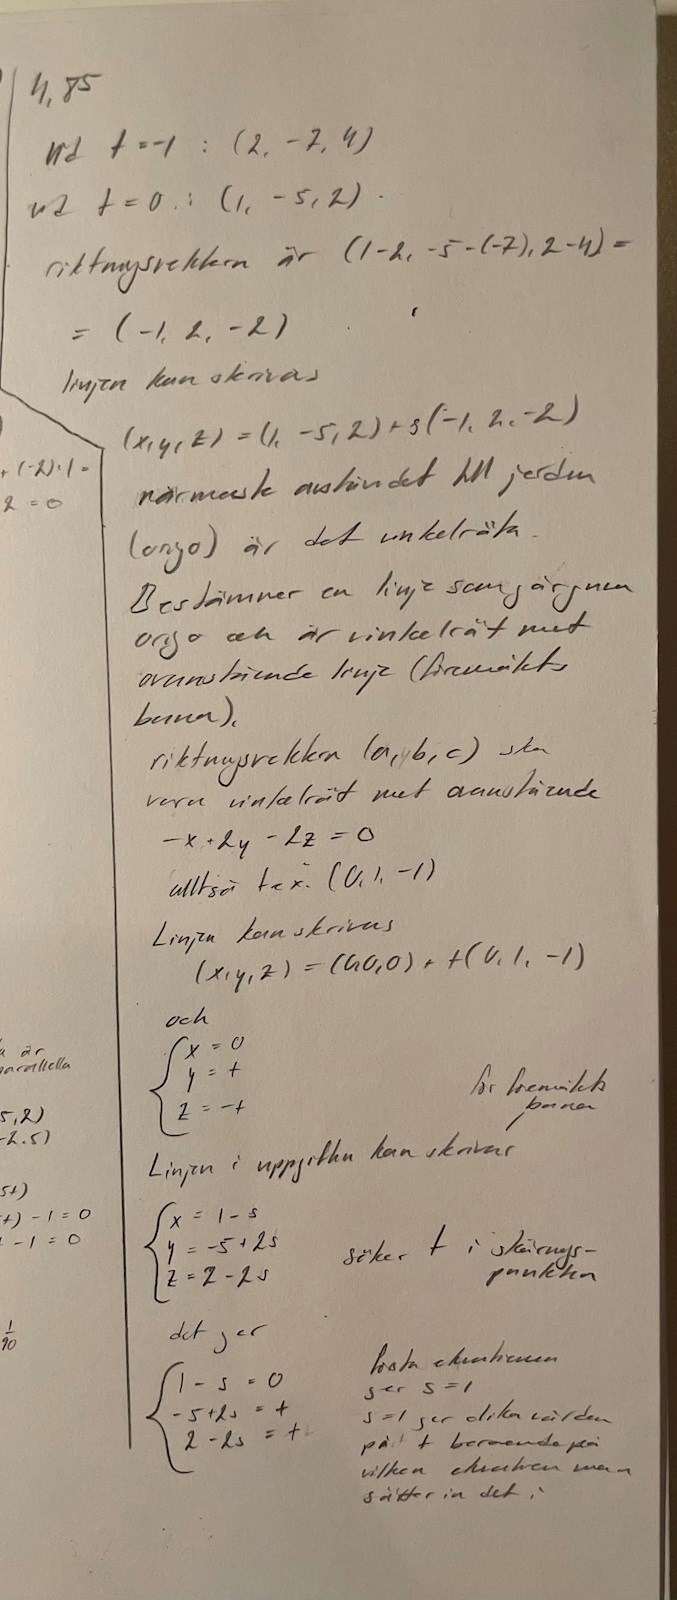 4,85
vid t=-1 : (2, -7, 4)
vid t=0 : (1, -5, 2).
riktningsvektorn är (1-2, -5-(-7), 2-4) =
= (-1, 2, -2)
linjen kan skrivas
(x,y,z) = (1, -5, 2) + s(-1, 2, -2)
närmaste avståndet till jorden
(origo) är det vinkelräta.
Bestämmer en linje som går genom
origo och är vinkelrät mot
ovanstående linje (föremålets
bana).
riktningsvektorn (a, b, c) ska
vara vinkelrät mot ovanstående
-x + 2y - 2z = 0
alltså t ex. (0, 1, -1)
Linjen kan skrivas
(x,y,z) = (0,0,0) + t(0, 1, -1)
och
x = 0
y = t
z = -t
för föremålets
bana
Linjen i uppgiften kan skrivas
x = 1 - s
y = -5 + 2s
z = 2 - 2s
söker t i skärnings-
punkten
det ger
1 - s = 0
-5 + 2s = t
2 - 2s = t
första ekvationen
ger s = 1
s = 1 ger olika värden
på t beroende på
vilken ekvation man
sätter in det i
+ (-2)·1 =
2 = 0
är
parallella
5, 2)
-2.5)
5t)
t) - 1 = 0
- 1 = 0
1/90